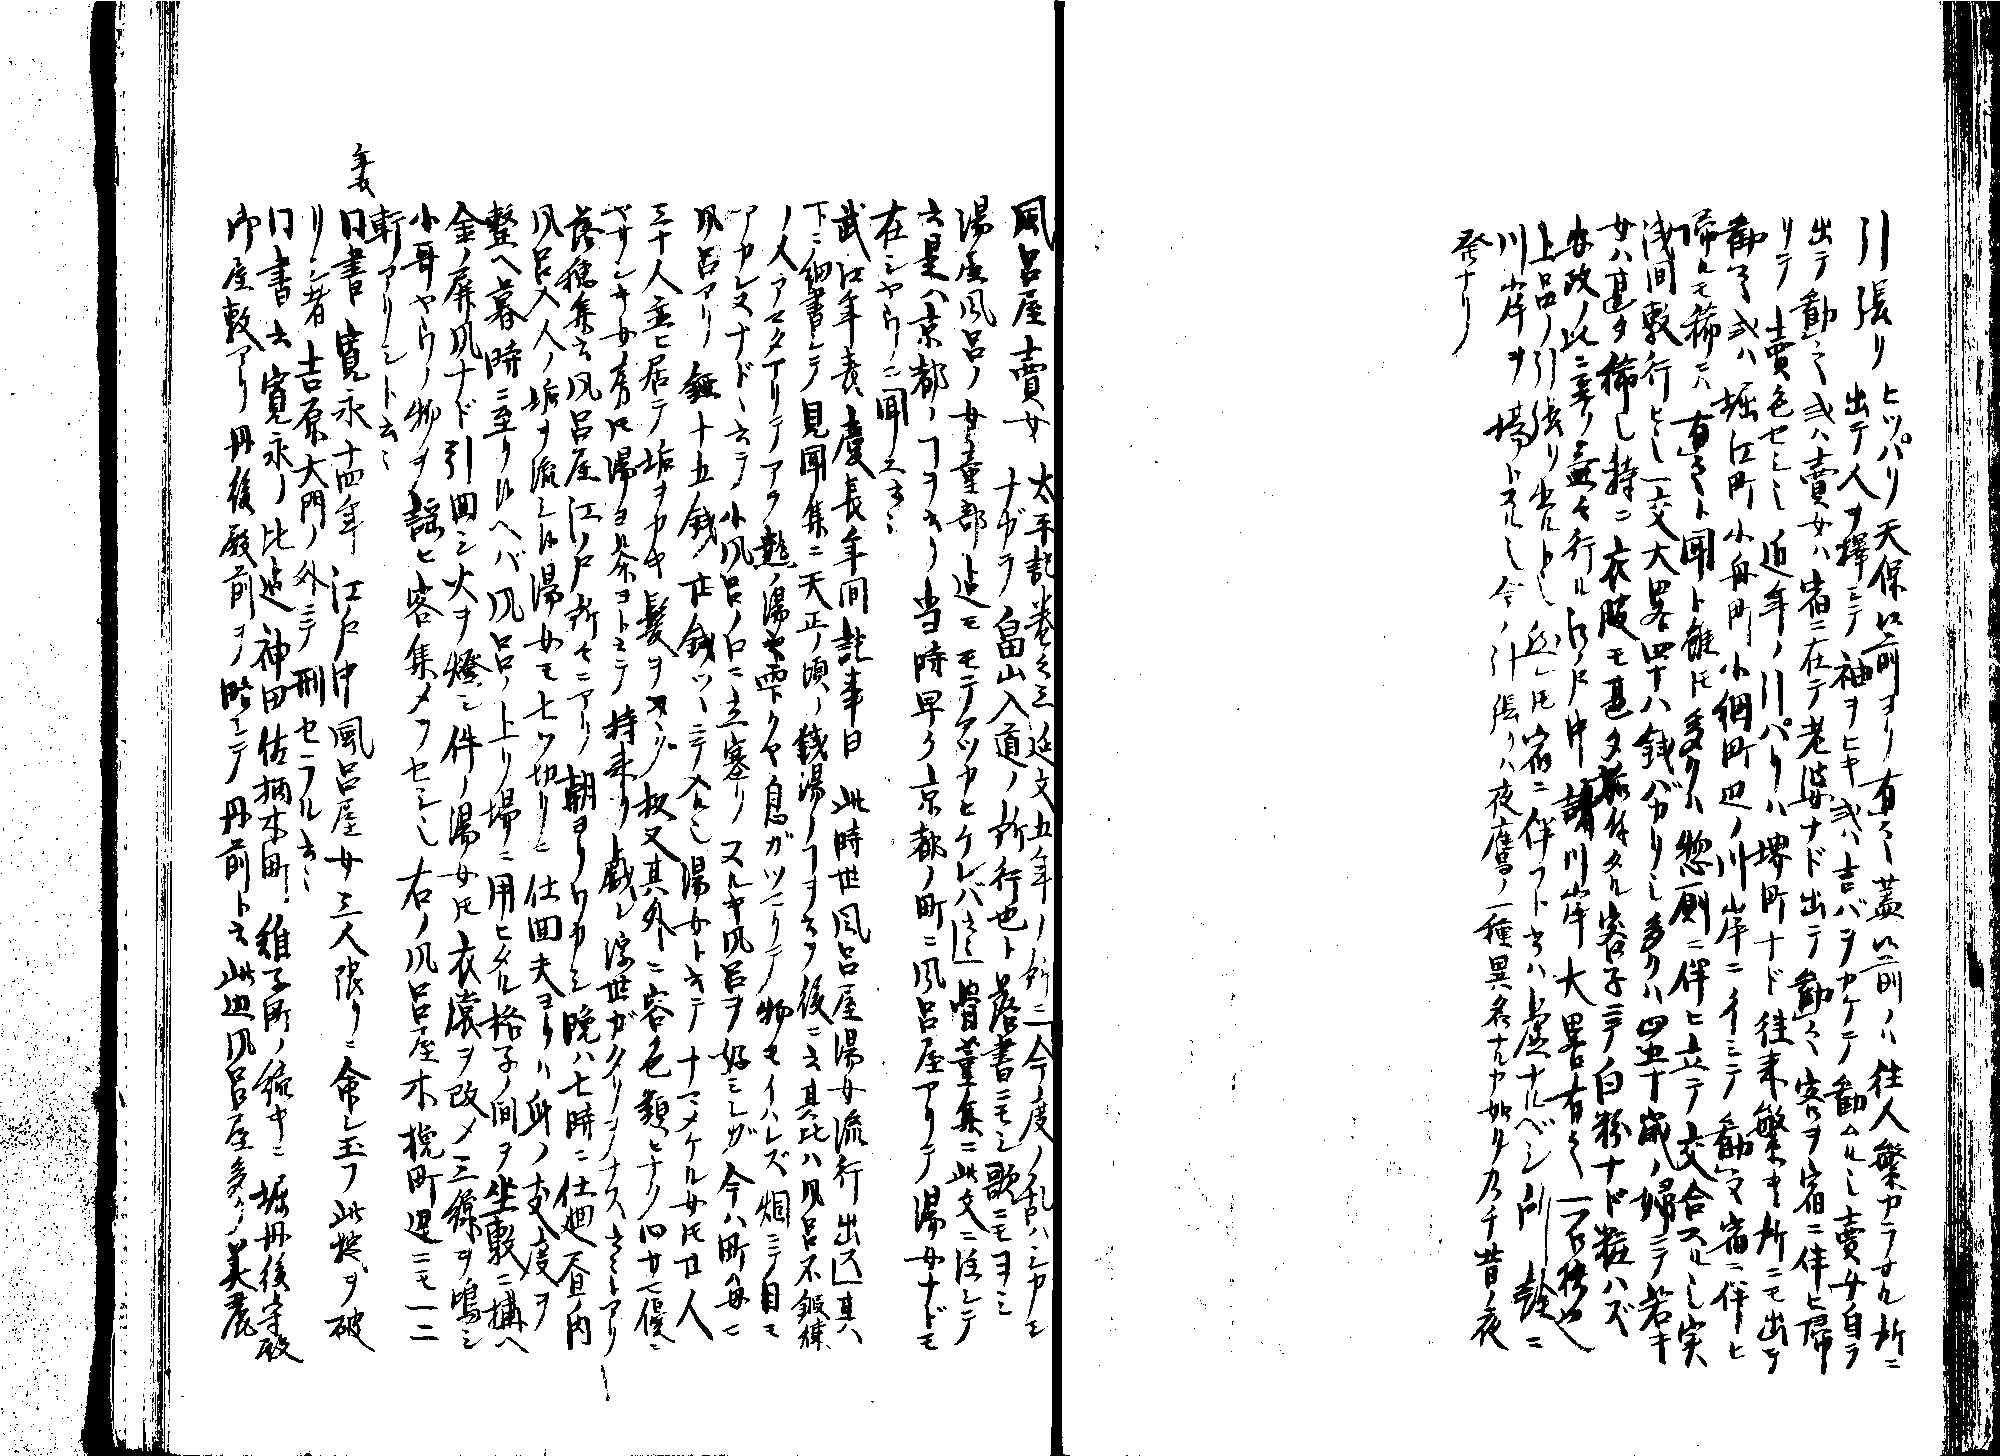 引張リ ヒッパリ天保以前ヨリ有之蓋以前ノハ往人繁カラザル所ニ
出テ人ヲ擇ミテ袖ヲヒキ或ハ言バヲカケテ勧ムル也賣女自ラ
出テ勧之或ハ賣女ハ宿ニ在テ老婆ナド出テ勧之客ヲ宿ニ伴ヒ帰
リテ賣色セシ也近年ノ引パリハ堺町ナド往来繁キ所ニモ出テ
勧之或ハ堀江町小舟町小網町辺ノ川岸ニイミテ勧之宿ニ伴ヒ
帰ルモ稀ニハ有之ト聞ト雖ドモ多クハ惣厠ニ伴ヒ立テ交合スル也実
浅間敷行ヒ也一交大畧四十八銭バカリ也多クハ四五十歳ノ婦ニテ若キ
女ハ甚ダ稀也特ニ衣服モ甚ダ 客子ニテ白粉ナド粧ハズ
安政ノ比ニ至リ益々行ル江戸中諸川岸大畧有之
上品ノ引張リ当ルト也 宿ニ伴フト云ハ虚ナルベシ所詮ニ
川岸ヲ塲トスル也今ノ引張リハ夜鷹ノ一種異名ナルカ如シ乃チ昔ノ夜
発ナリ
風呂屋賣女 太平記巻之三延文五年ノ所ニ今度ノ乱ハシカシ
ナガラ畠山入道ノ所行也ト落書ニモシ歌ニモヨミ
湯屋風呂ノ女童部迄モモテアツカヒケレバ 骨董集ニ此文ニ注シテ
云是ハ京都ノヿヲ云リ当時早ク京都ノ町ニ風呂屋アリテ湯女ナドモ
在シヤウニ聞ユ云々
武江年表慶長年間記事曰此時世風呂屋湯女流行出ス 其
下ニ細書シテ見聞集ニ天正ノ頃ノ銭湯ノヿヲ云フ後ニ云其比ハ風呂不鍛煉
ノ人アマタアリテアラ熱ノ湯ヤ雫クヤ息ガツマリテ物モイハレズ烟ニテ目モ
アカレヌナドヽ云テ小風呂ノ口ニ立塞リスルキ風呂ヲ好ミシガ今ハ町毎ニ
風呂アリ銕十五銭廿銭ヅヽニテ入ル也湯女ト云テナマメケル女ドモ廿人
三十人並ヒ居テ垢ヲカキ髪ヲスヽグ扨又其外ニ容色類ヒナク心サモ優ニ
ヤサシキ女房ドモ湯ヨ茶ヨト云テ持来リ戯レ浮世ガタリヲナス云々トアリ
落穂集云風呂屋江ノ戸所々ニアリ朝ヨリワカシ晩ハ七時ニ仕廻昼ノ内
風呂入人ノ垢ヲ流シ候湯女モ七ツ切リニ仕廻夫ヨリハ身ノ支度ヲ
整ヘ暮時ニ至リ候ヘバ風呂ノ上リ場ニ用ヒタル格子ノ間ヲ坐敷ニ構ヘ
金ノ屏風ナド引回シ火ヲ燈シ件ノ湯女ドモ衣裳ヲ改メ三線ヲ鳴シ
小哥ヤウノ物ヲ謡ヒ客集メヲセシ也右ノ風呂屋木挽町辺ニモ一二
軒アリシト云々
同書 寛永十四年江戸中風呂屋女三人限リニ命シ玉フ此掟ヲ破
リシ者吉原大門ノ外ニテ刑セラル云々
同書云寛永ノ比迄神田佐柄木町雉子町ノ續キニ堀丹後守殿
御屋敷アリ丹後殿前ヲ略シテ丹前ト云此辺風呂屋多ク美麗